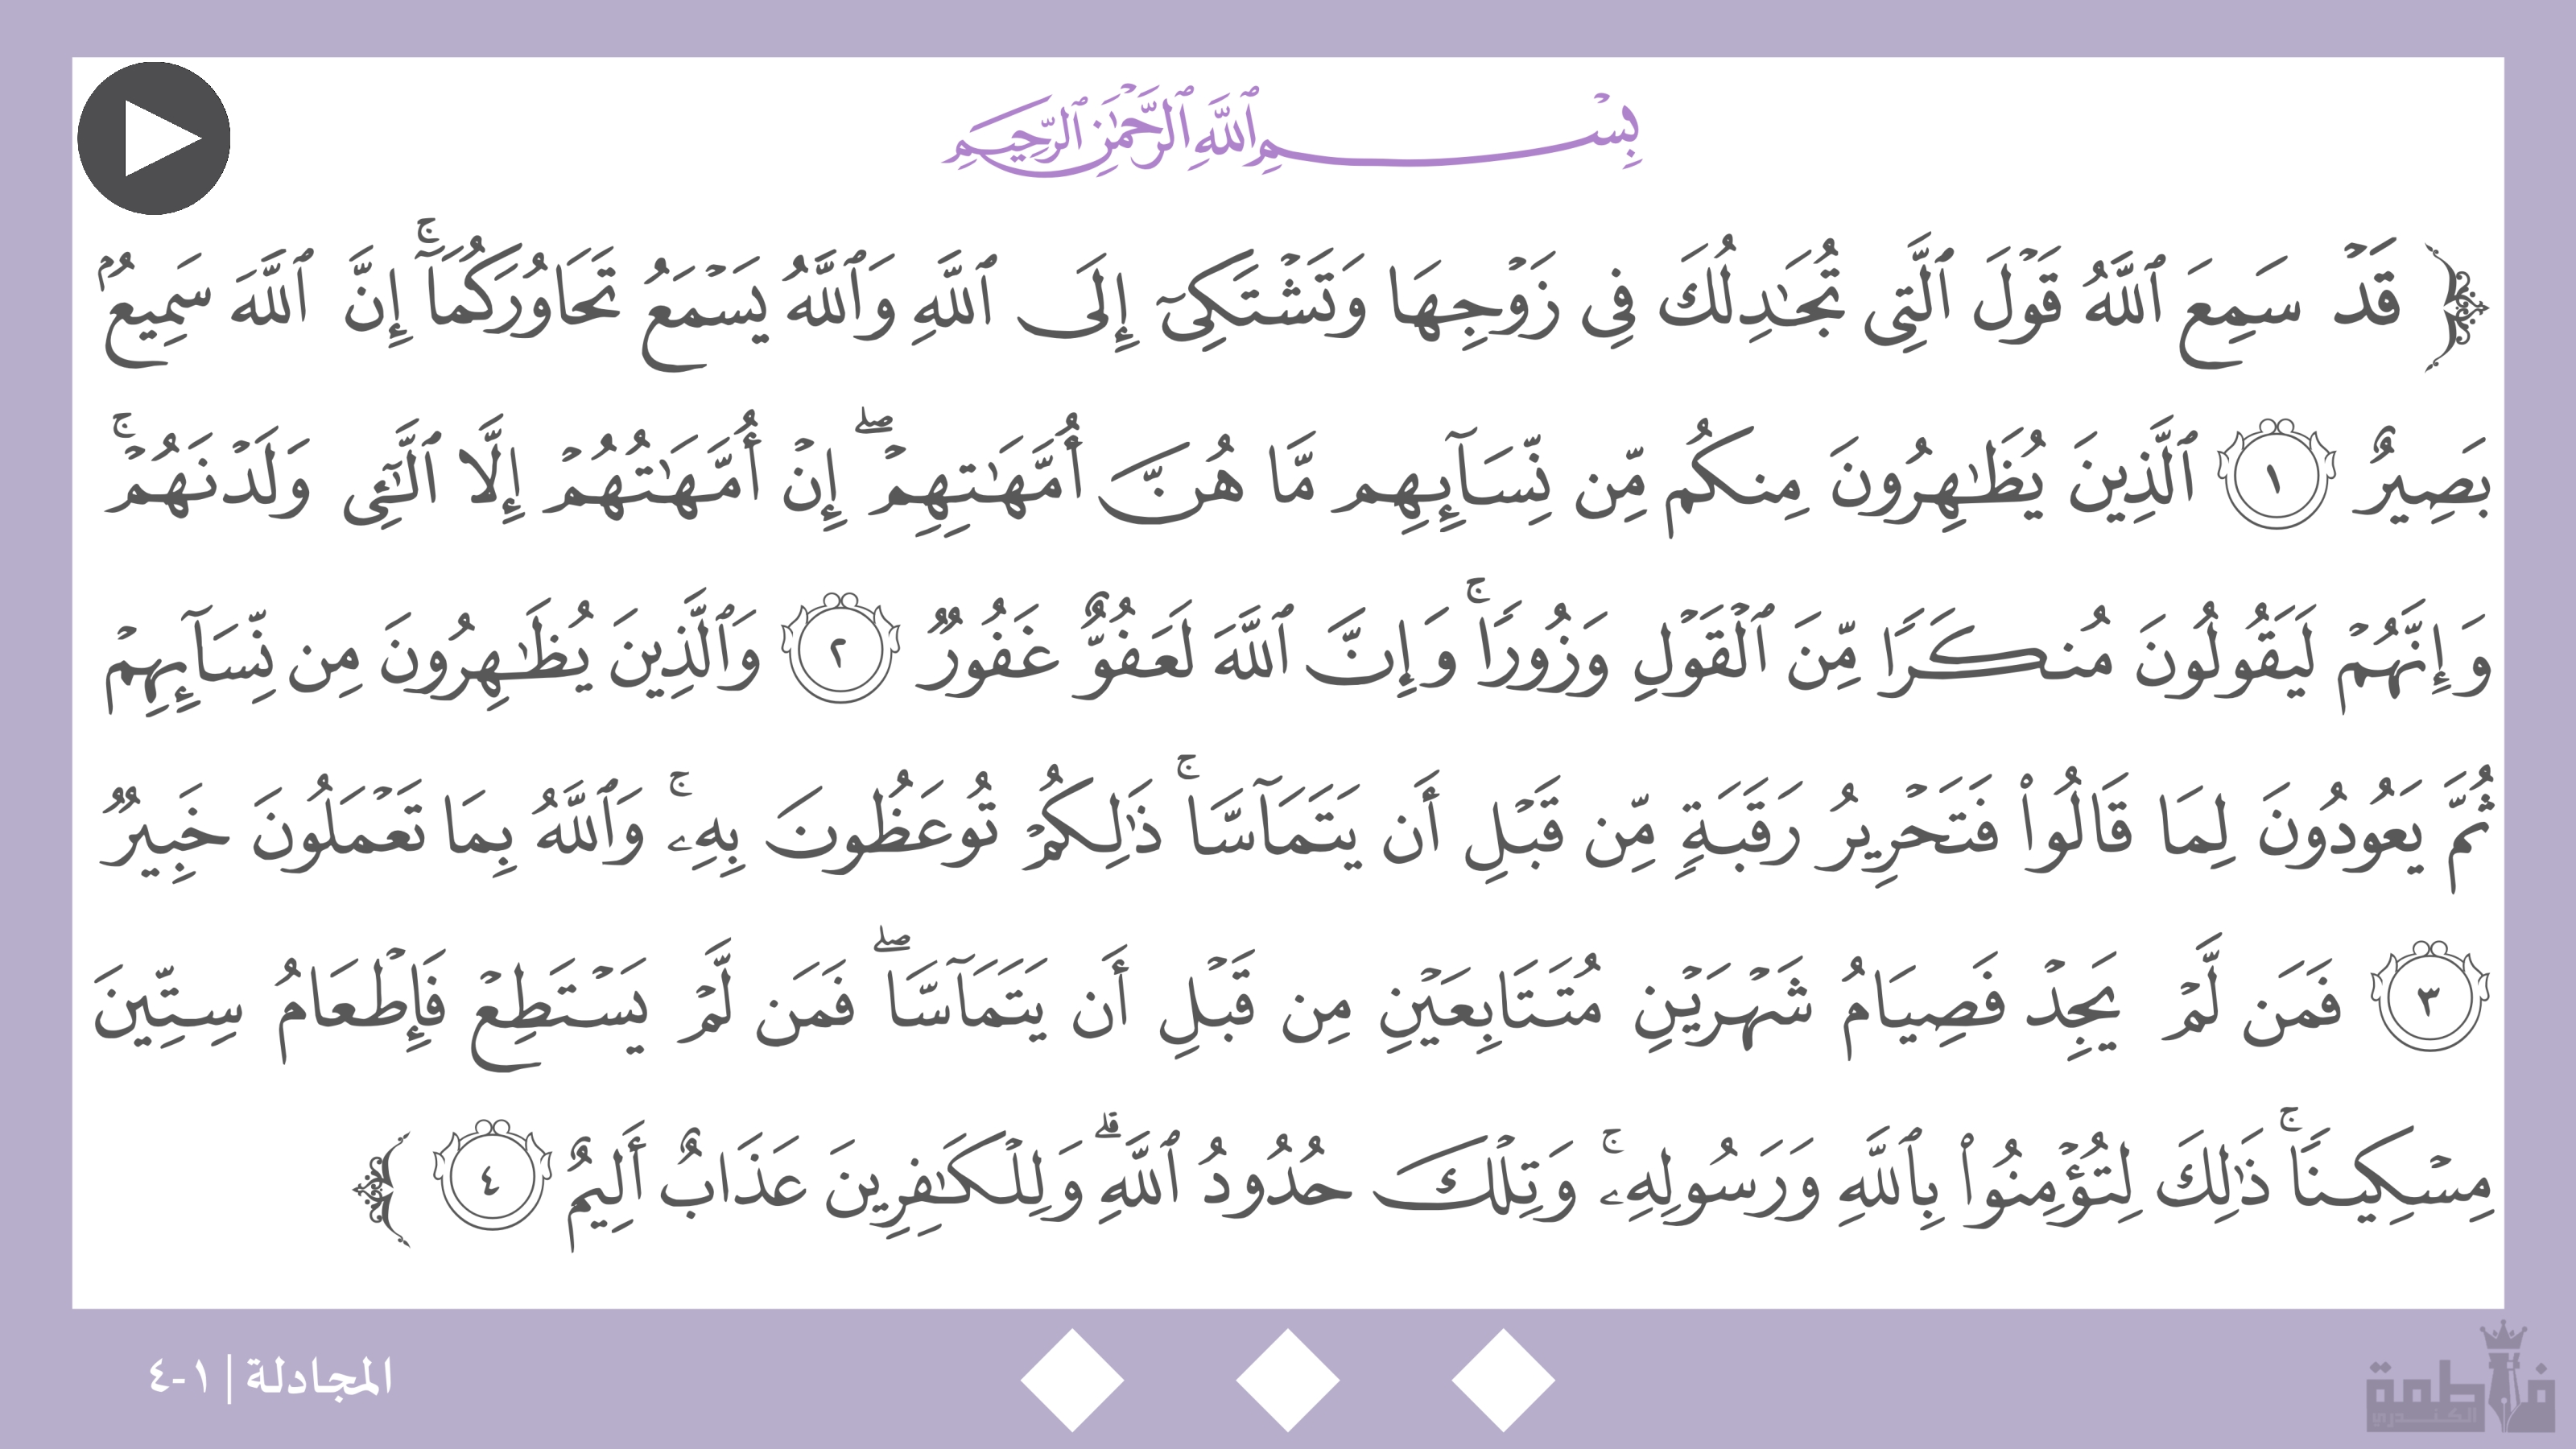 بِسْمِ ٱللَّهِ ٱلرَّحْمَٰنِ ٱلرَّحِيمِ
﴿ قَدْ سَمِعَ ٱللَّهُ قَوْلَ ٱلَّتِى تُجَـٰدِلُكَ فِى زَوْجِهَا وَتَشْتَكِىٓ إِلَى ٱللَّهِ وَٱللَّهُ يَسْمَعُ تَحَاوُرَكُمَآ ۚ إِنَّ ٱللَّهَ سَمِيعٌۢ
بَصِيرٌ ١ ٱلَّذِينَ يُظَـٰهِرُونَ مِنكُم مِّن نِّسَآئِهِم مَّا هُنَّ أُمَّهَـٰتِهِمْ ۖ إِنْ أُمَّهَـٰتُهُمْ إِلَّا ٱلَّـٰٓـِٔى وَلَدْنَهُمْ ۚ
وَإِنَّهُمْ لَيَقُولُونَ مُنكَرًا مِّنَ ٱلْقَوْلِ وَزُورًا ۚ وَإِنَّ ٱللَّهَ لَعَفُوٌّ غَفُورٌ ٢ وَٱلَّذِينَ يُظَـٰهِرُونَ مِن نِّسَآئِهِمْ
ثُمَّ يَعُودُونَ لِمَا قَالُوا۟ فَتَحْرِيرُ رَقَبَةٍ مِّن قَبْلِ أَن يَتَمَآسَّا ۚ ذَٰلِكُمْ تُوعَظُونَ بِهِۦ ۚ وَٱللَّهُ بِمَا تَعْمَلُونَ خَبِيرٌ
٣ فَمَن لَّمْ يَجِدْ فَصِيَامُ شَهْرَيْنِ مُتَتَابِعَيْنِ مِن قَبْلِ أَن يَتَمَآسَّا ۖ فَمَن لَّمْ يَسْتَطِعْ فَإِطْعَامُ سِتِّينَ
مِسْكِينًا ۚ ذَٰلِكَ لِتُؤْمِنُوا۟ بِٱللَّهِ وَرَسُولِهِۦ ۚ وَتِلْكَ حُدُودُ ٱللَّهِ ۗ وَلِلْكَـٰفِرِينَ عَذَابٌ أَلِيمٌ ٤ ﴾
المجادلة | ١-٤
فاطمة
الكندري